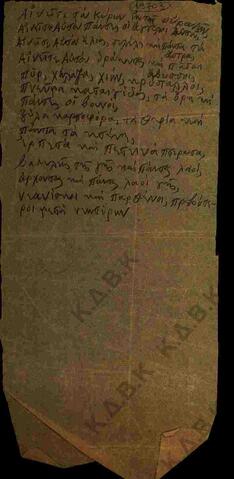 (1970)
Αἰνεῖτε τὸν Κύριον ἐκ τῶν οὐρανῶν
Αἰνεῖτε Αὐτὸν Πάντες οἱ ἄγγελοι Αὐτοῦ,
Αἰνεῖτε Αὐτὸν ἥλιος, σελήνη καὶ πάντα τὰ
ἄστρα
Αἰνεῖτε Αὐτὸν δράκοντες καὶ πᾶσαι
ἄβυσσοι
πῦρ, χάλαζα, χιών, κρύσταλλος
πνεῦμα καταιγίδος, τὰ ὄρη καὶ
πάντες οἱ βουνοί
ξύλα καρποφόρα, τὰ θηρία καὶ
πάντα τὰ κτήνη,
ἑρπετὰ καὶ πετεινὰ πτερωτά,
βασιλεῖς τῆς γῆς καὶ πάντες λαοί,
ἄρχοντες καὶ πάντες λαοὶ γῆς,
νεανίσκοι καὶ παρθένοι, πρεσβύτε-
ροι μετὰ νεωτέρων
Κ.Δ.Β.Κ
Κ.Δ.Β.Κ
Κ.Δ.Β.Κ